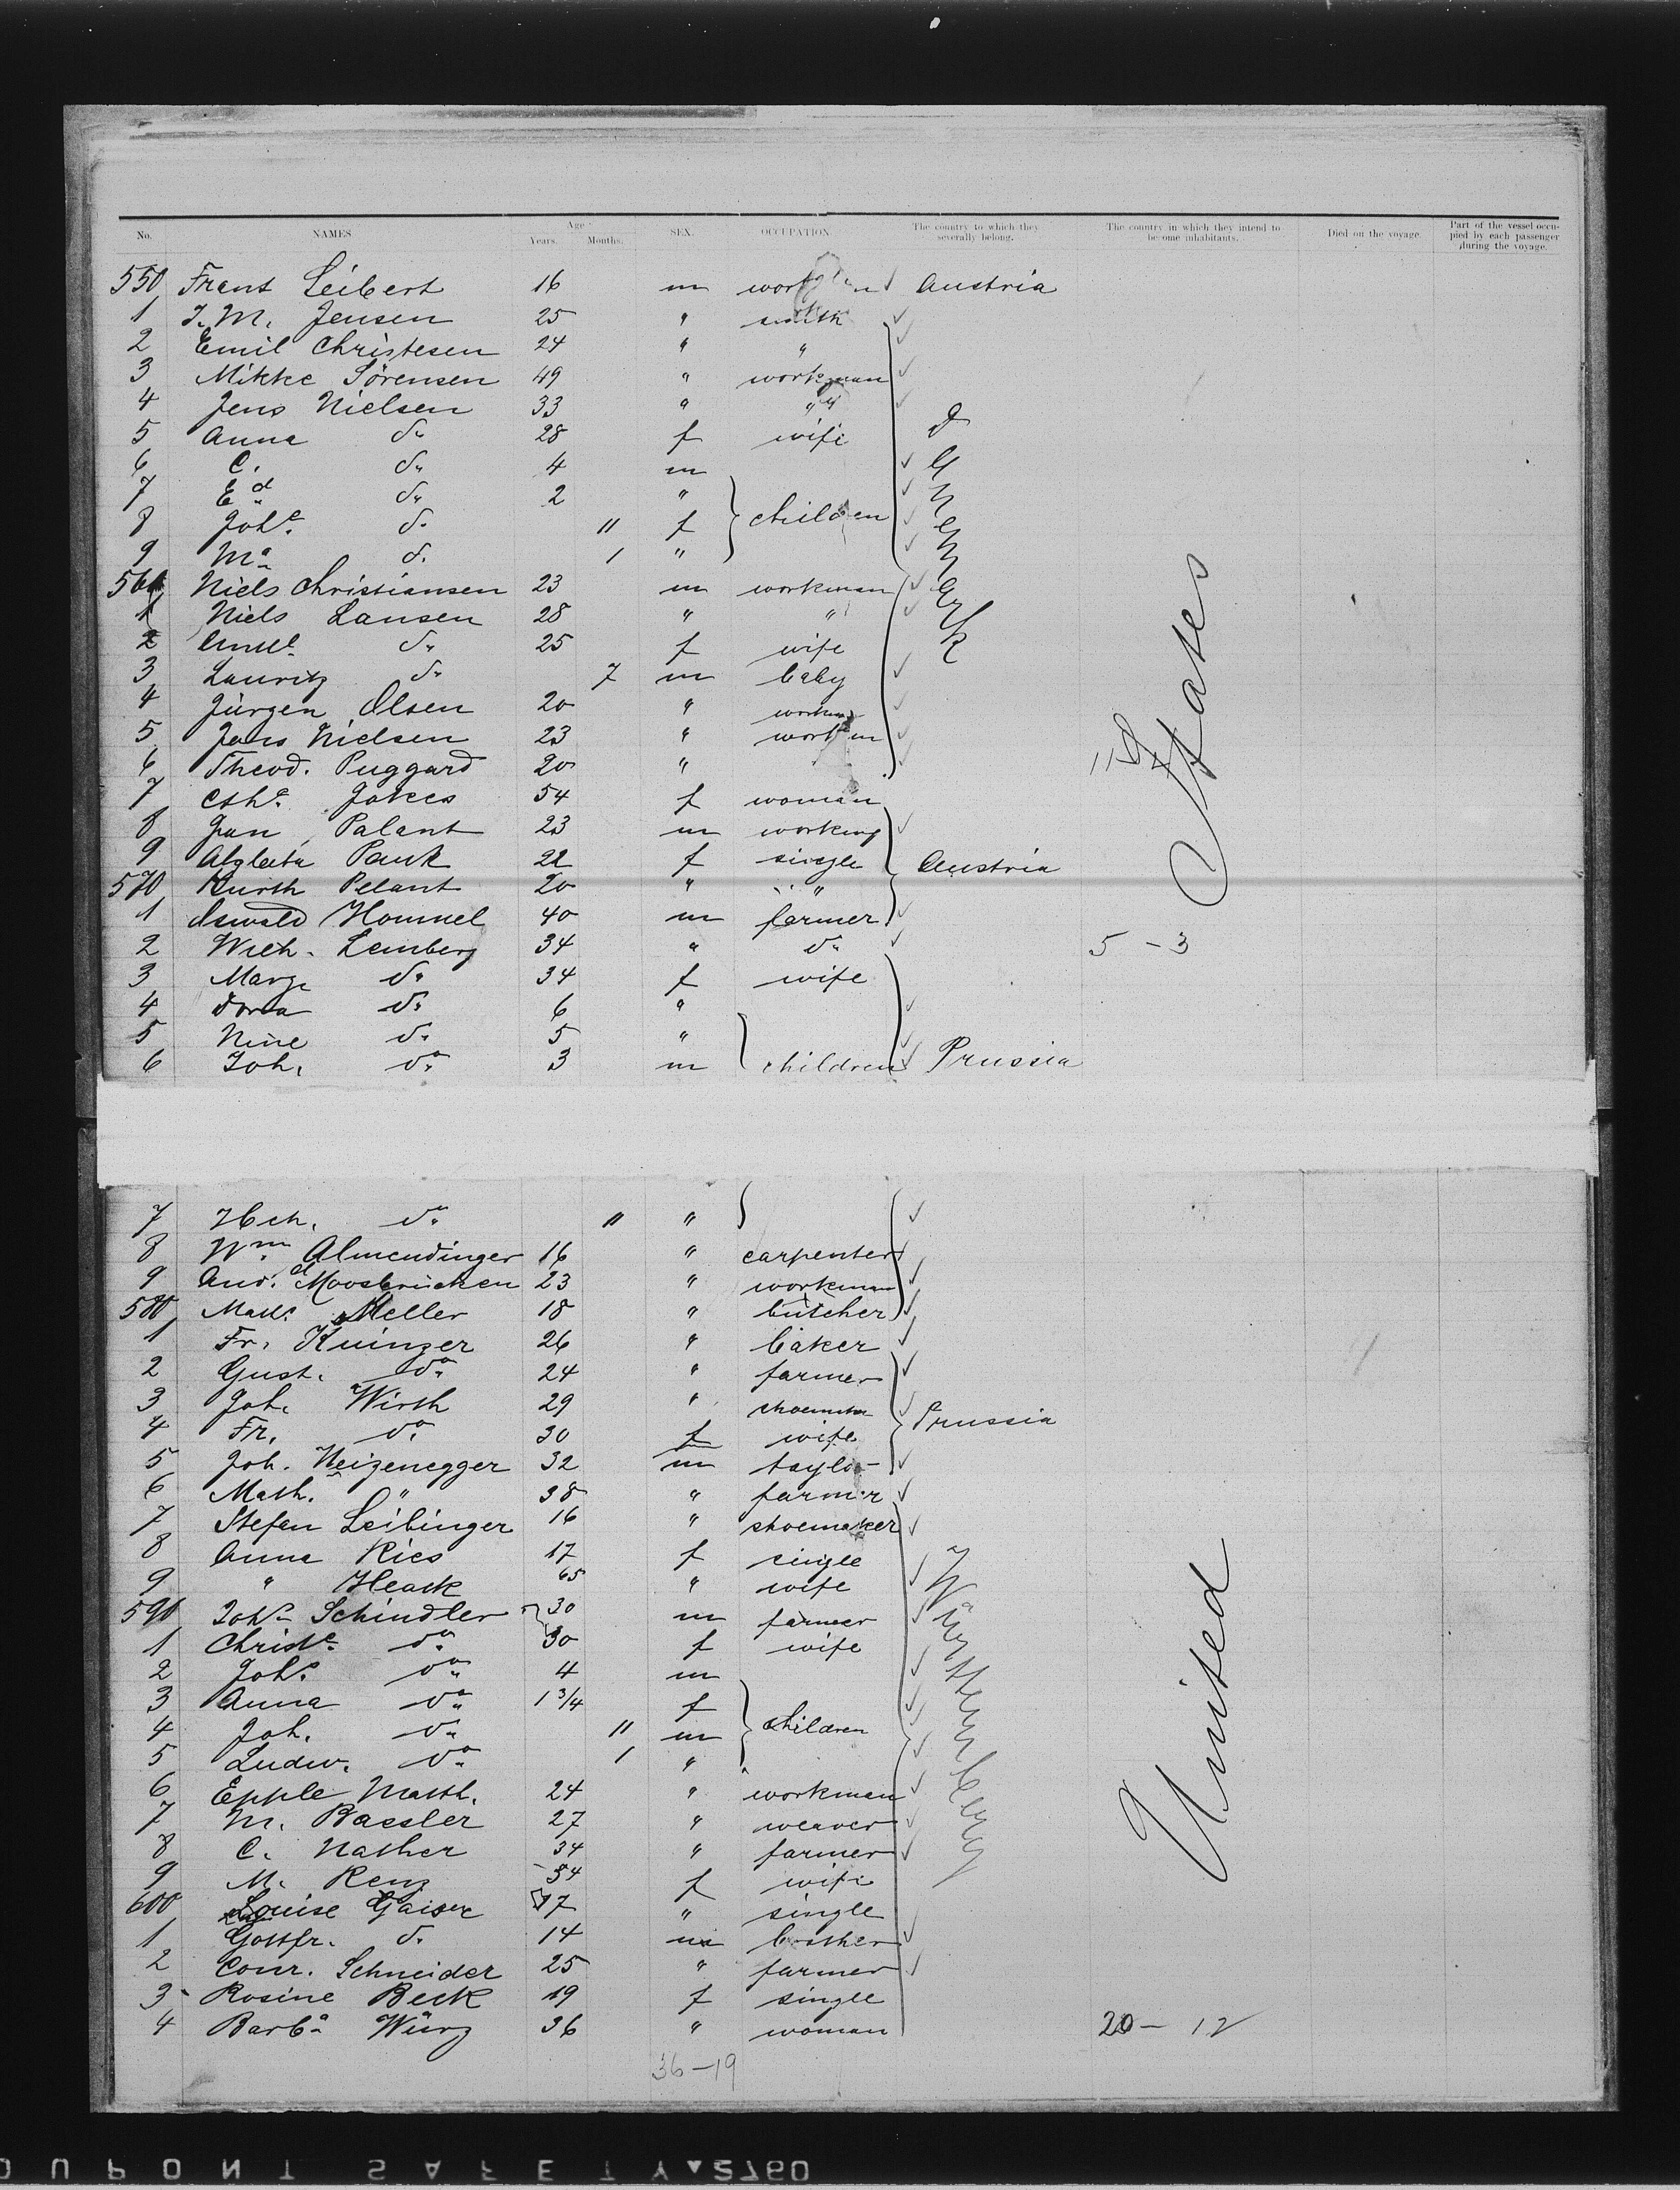 No. NAMES Age Years. Months. SEX. OCCUPATION. The country to which they severally belong. The country in which they intend to become inhabitants. Died on the voyage. Part of the vessel occupied by each passenger during the voyage.
550 Frans Leibert 16 m Austria
1 J. M. Jensen 25 " smith
2 Emil Christesen 24 " "
3 Mikke Sörensen 49 " workman
4 Jens Nielsen 33 " "
5 Anna do 28 f wife
6 C. do 4 m
7 Ed do 2 "
8 Joh.e do 11 f children
9 Ma do 1 "
560 Niels Christiansen 23 m workman
1 Niels Lansen 28 " "
2 do 25 f wife
3 Lauritz do 7 m baby
4 Jürgen Olsen 20 "
5 Jens Nielsen 23 " workm
6 Theod. Puggard 20 "
7 Cth.e Jokes 54 f woman
8 Jan Palant 23 m working
9 Pauk 22 f single Austria
570 Pelant 20 " "
1 Oswald Hommel 40 m farmer
2 Wilh. Lemberg 34 " do
3 Marg. do 34 f wife
4 Dora do 6 "
5 Nine do 5 "
6 Joh. do 3 m children Prussia
Denmark
11 States
5 - 3
7 Hch. do 11 "
8 Wm Almendinger 16 " carpenter
9 And. Moosbrücken 23 " workman
580 Meller 18 " butcher
1 Fr. Kuinzer 26 " baker
2 Gust. do 24 " farmer
3 Joh. Wirth 29 "
4 Fr. do 30 f wife Prussia
5 Joh. Neizenegger 32 m taylor
6 Math. " 38 " farmer
7 Stefan Leibinger 16 " shoemaker
8 Anna Ries 17 f single
9 " Heack 65 " wife
590 Joh. Schindler 30 m farmer
1 Christe do 30 f wife
2 Joh.s do 4 m
3 Anna do 1 3/4 f
4 Joh. do 11 m children
5 Ludw. do 1 "
6 Epple Matth. 24 " workman
7 M. Baesler 27 " weaver
8 C. Nather 34 " farmer
9 M. Renz 54 f wife
600 Louise Gaiser 17 " single
1 Gottfr. do 14 m brother
2 Conr. Schneider 25 " farmer
3 Rosine Beck 19 f single
4 Barba Würz 36 " woman
Württemberg
United
20 - 12
36-19
DUPONT SAFETY 2760